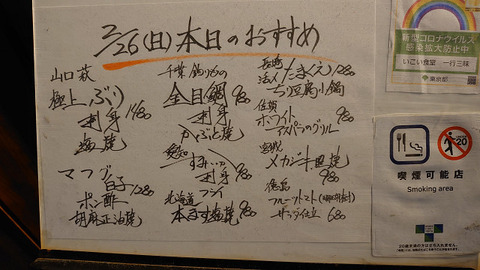 2/26(日)本日のおすすめ
山口 萩
極上ぶり
刺身 1480
塩焼
マフグ
白子 1280
ポン酢
胡麻正油焼
千葉 釣りもの
金目鯛 980
刺身
かぶと焼
愛知
刺身 980
フライ
北海道
本ます塩焼 980
長崎
たまくえ 1280
ちり豆腐小鍋
佐賀
ホワイト 980
アスパラのグリル
宮城
メカジキ
980
徳島
フルーツトマト
サラダ仕立 680
新型コロナウイルス
感染拡大防止中
いこい食堂 一行三昧
東京都
20
喫煙可能店
Smoking area